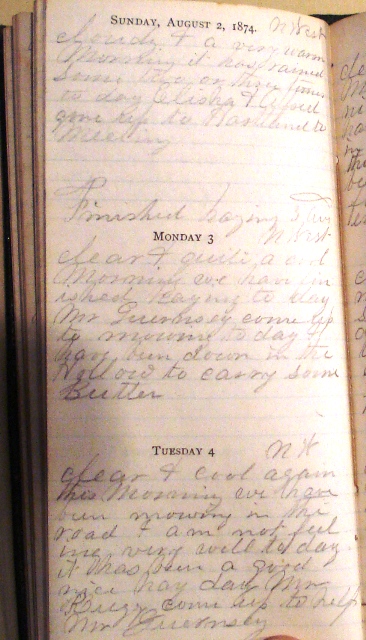 SUNDAY, AUGUST 2, 1874. N West
cloudy & a very warm
Morning it has rained
some two or three times
to day Elisha &
gone up to to
Meeting
Finished haying
MONDAY 3 N West
clear & quite a cool
Morning we have fin
ished haying to day
Mr Guernsey come up
to mowing to day I
have bin down in the
Hollow to carry some
Butter
TUESDAY 4 N W
clear & cool again
this Morning we have
bin mowing in the
road I am not feel
ing very well to day
it has bin a good
nice hay day Mr
come up to help
Mr Guernsey